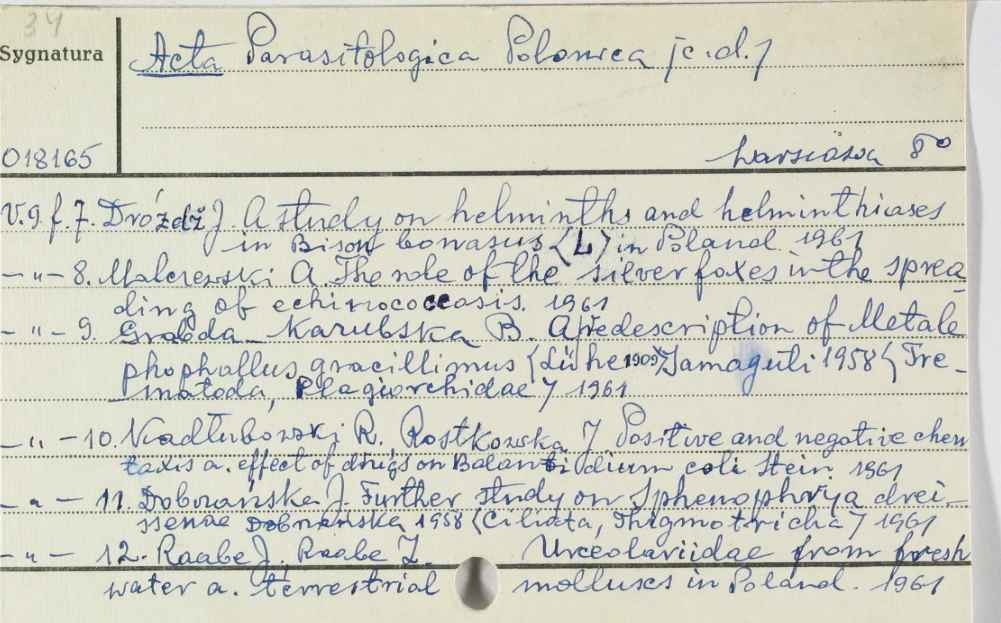 34
Sygnatura
Acta Parasitologica Polonica /c.d./
018165
Warszawa 8°
V.9 f.7. Dróżdż J. A study on helminths and helminthiases
in Bison bonasus (L) in Poland 1961
– „ – 8. Malczewski A. The role of the silver foxes in the sprea-
ding of echinococcosis. 1961
– „ – 9. Grabda-Kazubska B. A redescription of Metale
phophallus gracillimus (Lühe 1909) Jamaguti 1958 (Tre-
matoda, Plagiorchidae) 1961
– „ – 10. Niadłubowski R. Rostkowska J Positive and negative chem
taxis a. effect of drugs on Balantidium coli Stein 1961
– „ – 11. Dobrzańska J. Further study on Sphenophrya drei-
ssenae Dobrzańska 1958 (Ciliata, Thigmotricha) 1961
– „ – 12. Raabe J., Raabe Z. Urceolariidae from fresh
water a. terrestrial molluscs in Poland. 1961